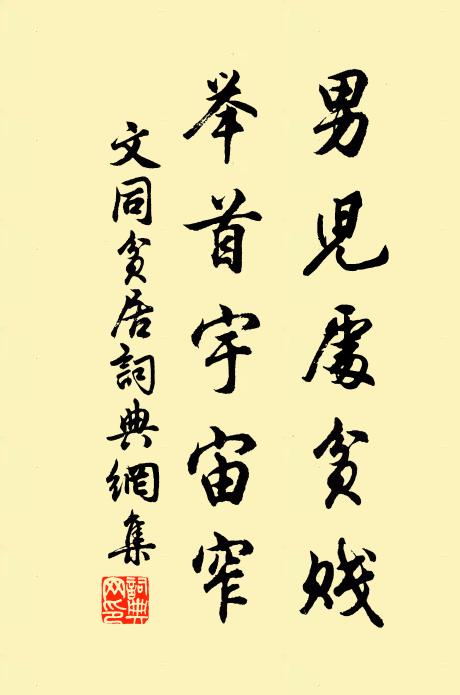 男兒處貧賤
举首宇宙窄
文同貧居詞典網集
詞典
网印